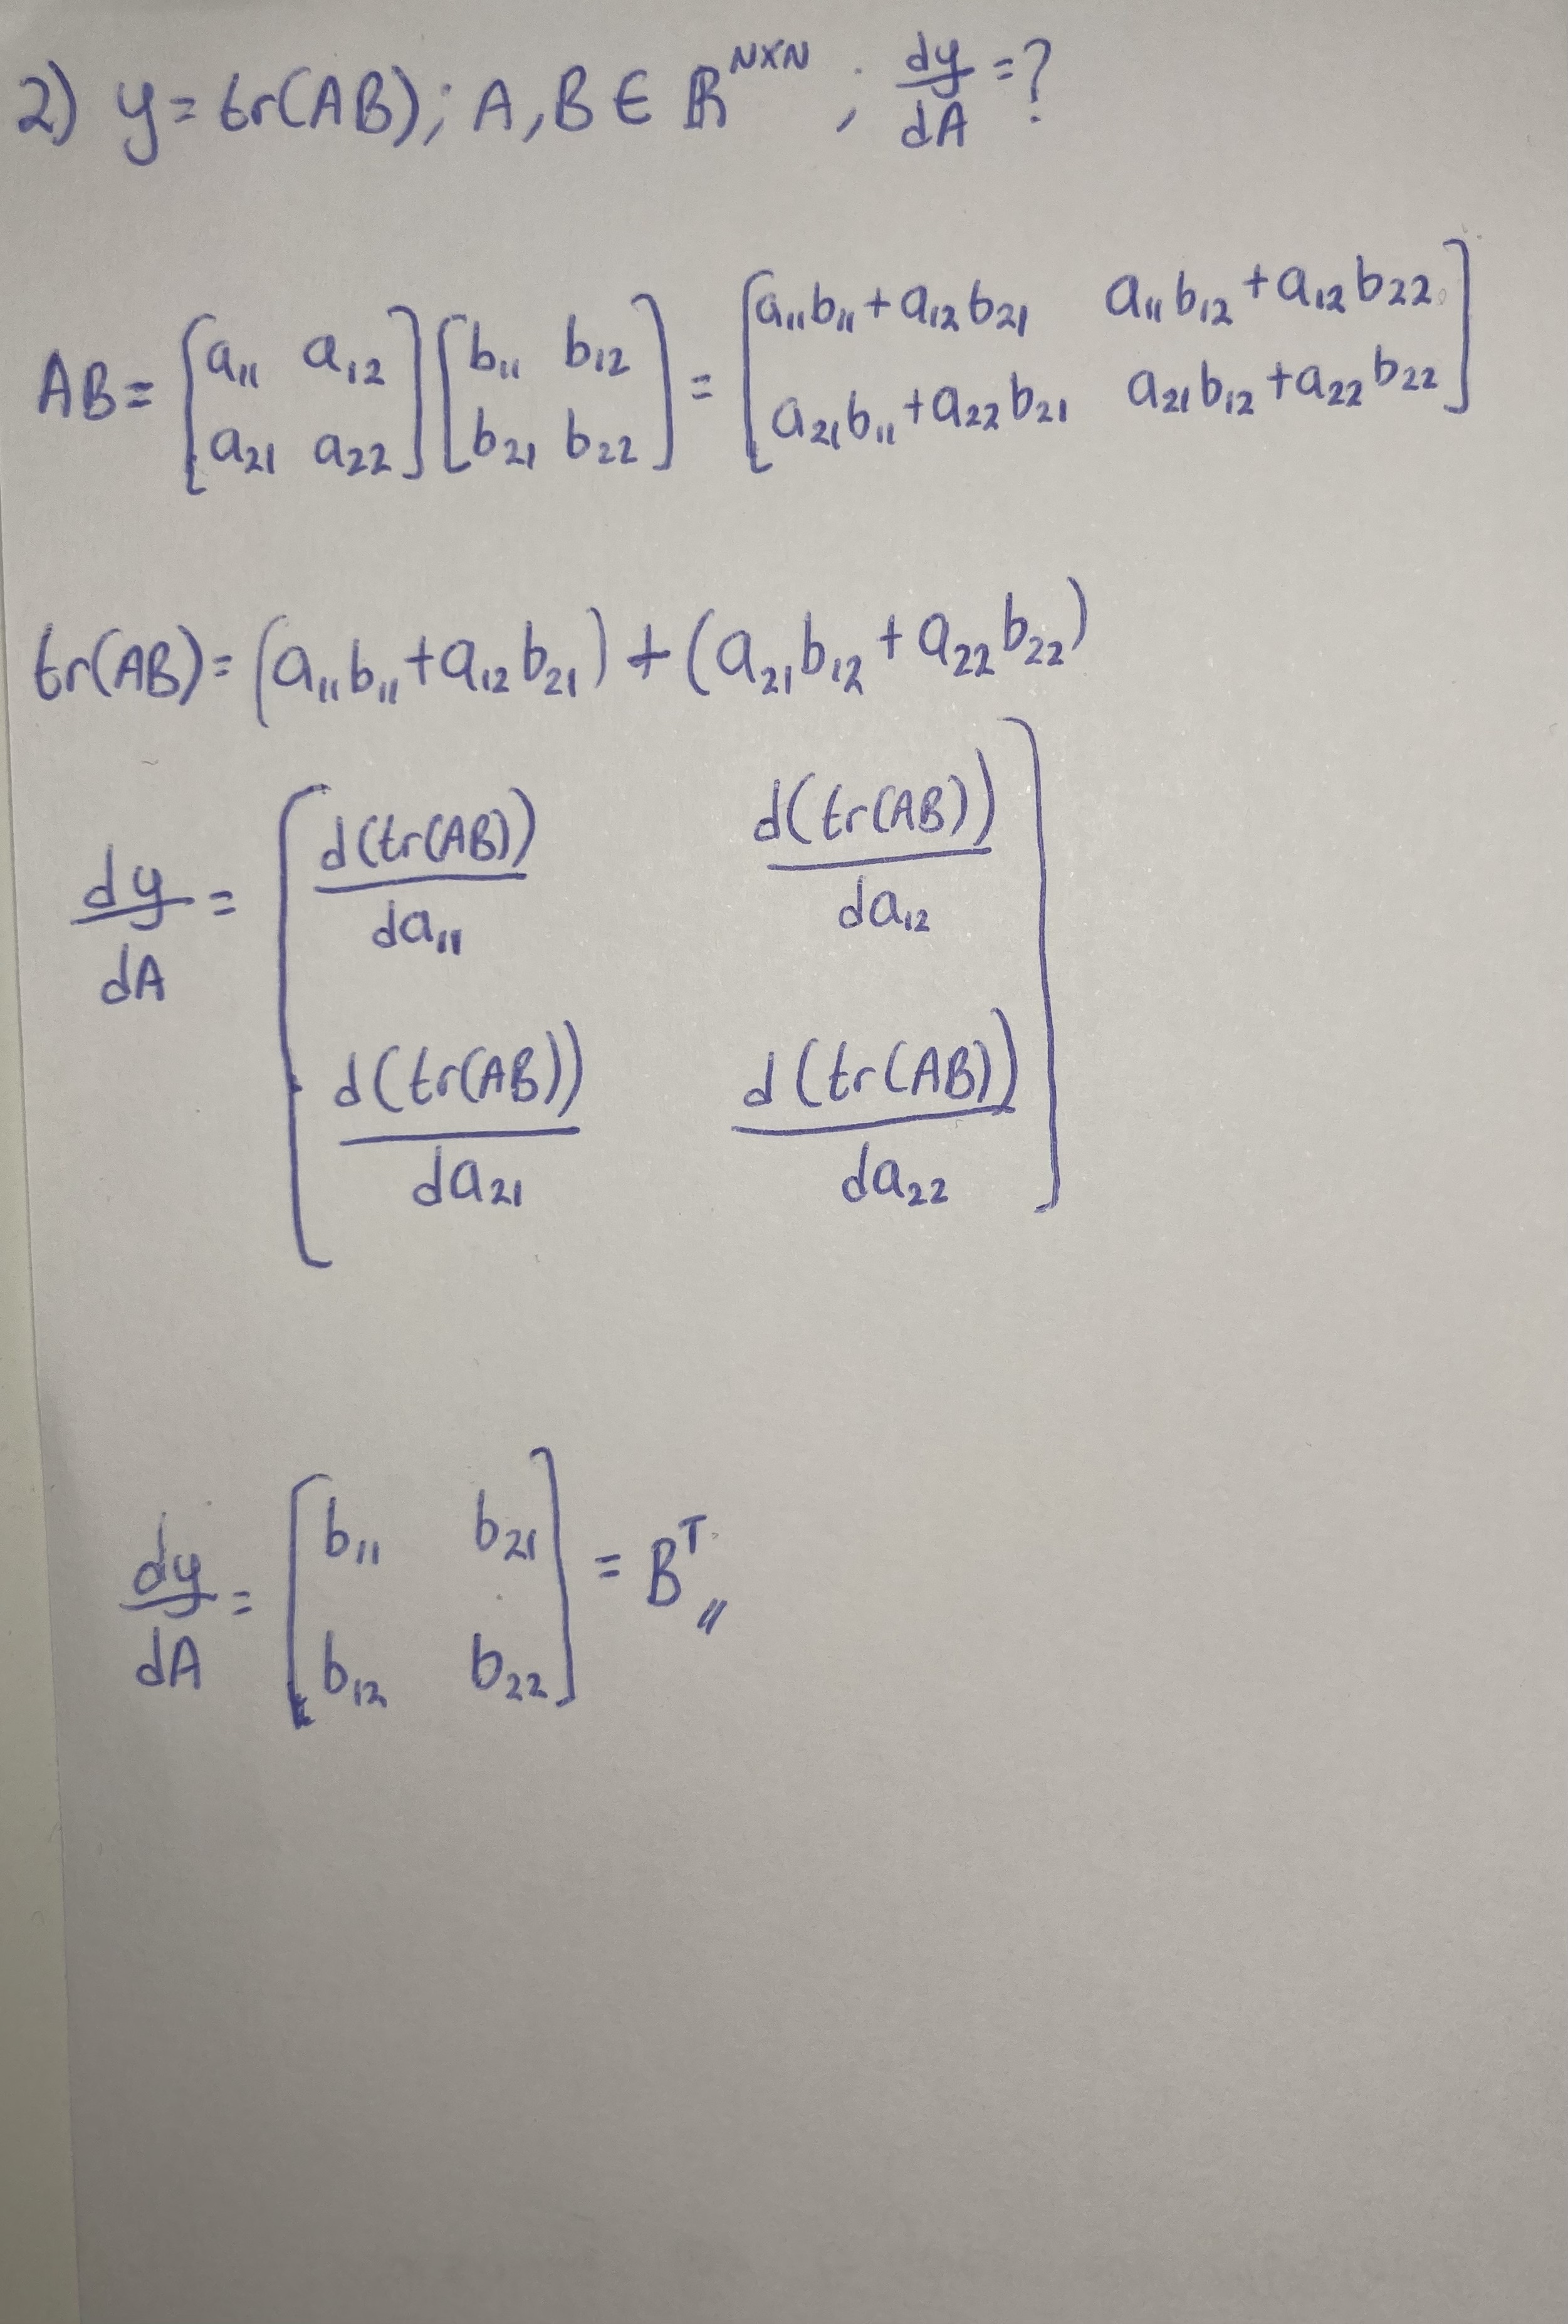 2) y = tr(AB); A, B ∈ ℝ^{N×N} ; dy/dA = ?
AB = [a₁₁ a₁₂; a₂₁ a₂₂] [b₁₁ b₁₂; b₂₁ b₂₂] = [a₁₁b₁₁ + a₁₂b₂₁  a₁₁b₁₂ + a₁₂b₂₂; a₂₁b₁₁ + a₂₂b₂₁  a₂₁b₁₂ + a₂₂b₂₂]
tr(AB) = (a₁₁b₁₁ + a₁₂b₂₁) + (a₂₁b₁₂ + a₂₂b₂₂)
dy/dA = [d(tr(AB))/da₁₁  d(tr(AB))/da₁₂; d(tr(AB))/da₂₁  d(tr(AB))/da₂₂]
dy/dA = [b₁₁ b₂₁; b₁₂ b₂₂] = Bᵀ〃